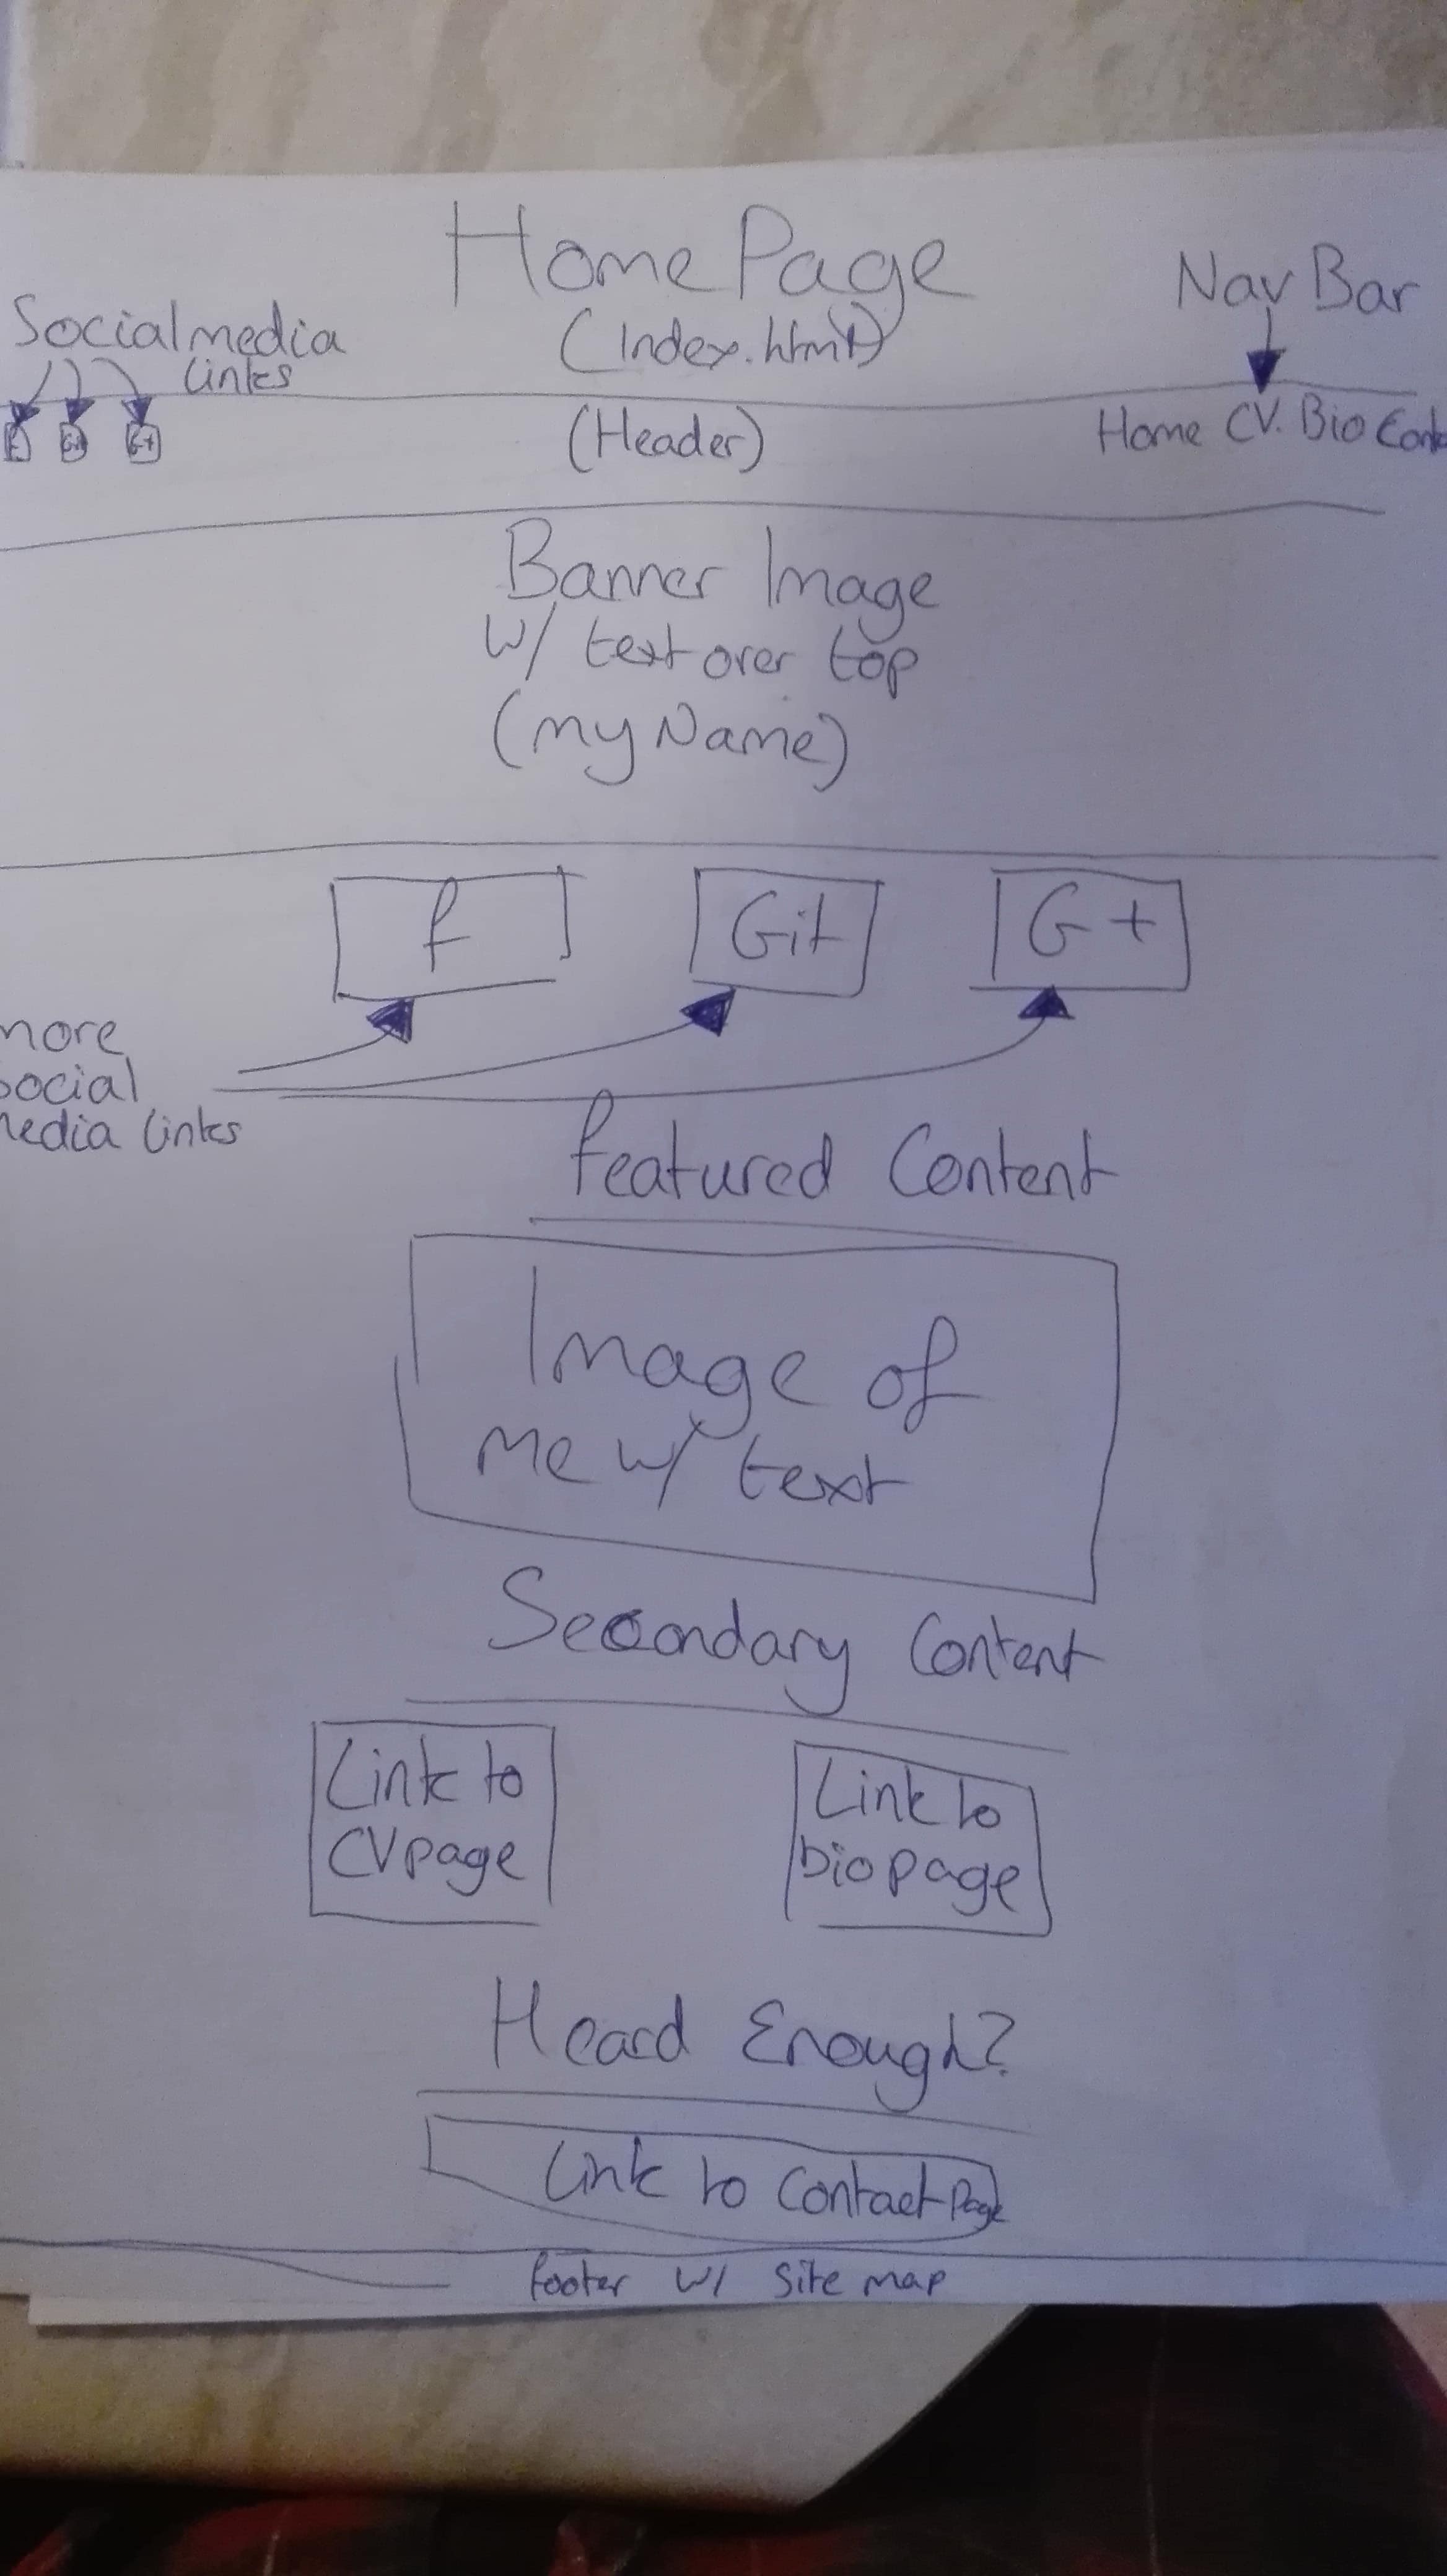 Home Page
(Index.html)
Nav Bar
Social media
links
G+
(Header)
Home CV. Bio Cont
Banner Image
w/ text over top
(my Name)
f
Git
G+
more
social
media links
Featured Content
Image of
me w/ text
Secondary Content
Link to
CV page
Link to
bio page
Heard Enough?
Link to Contact Page
footer w/ site map